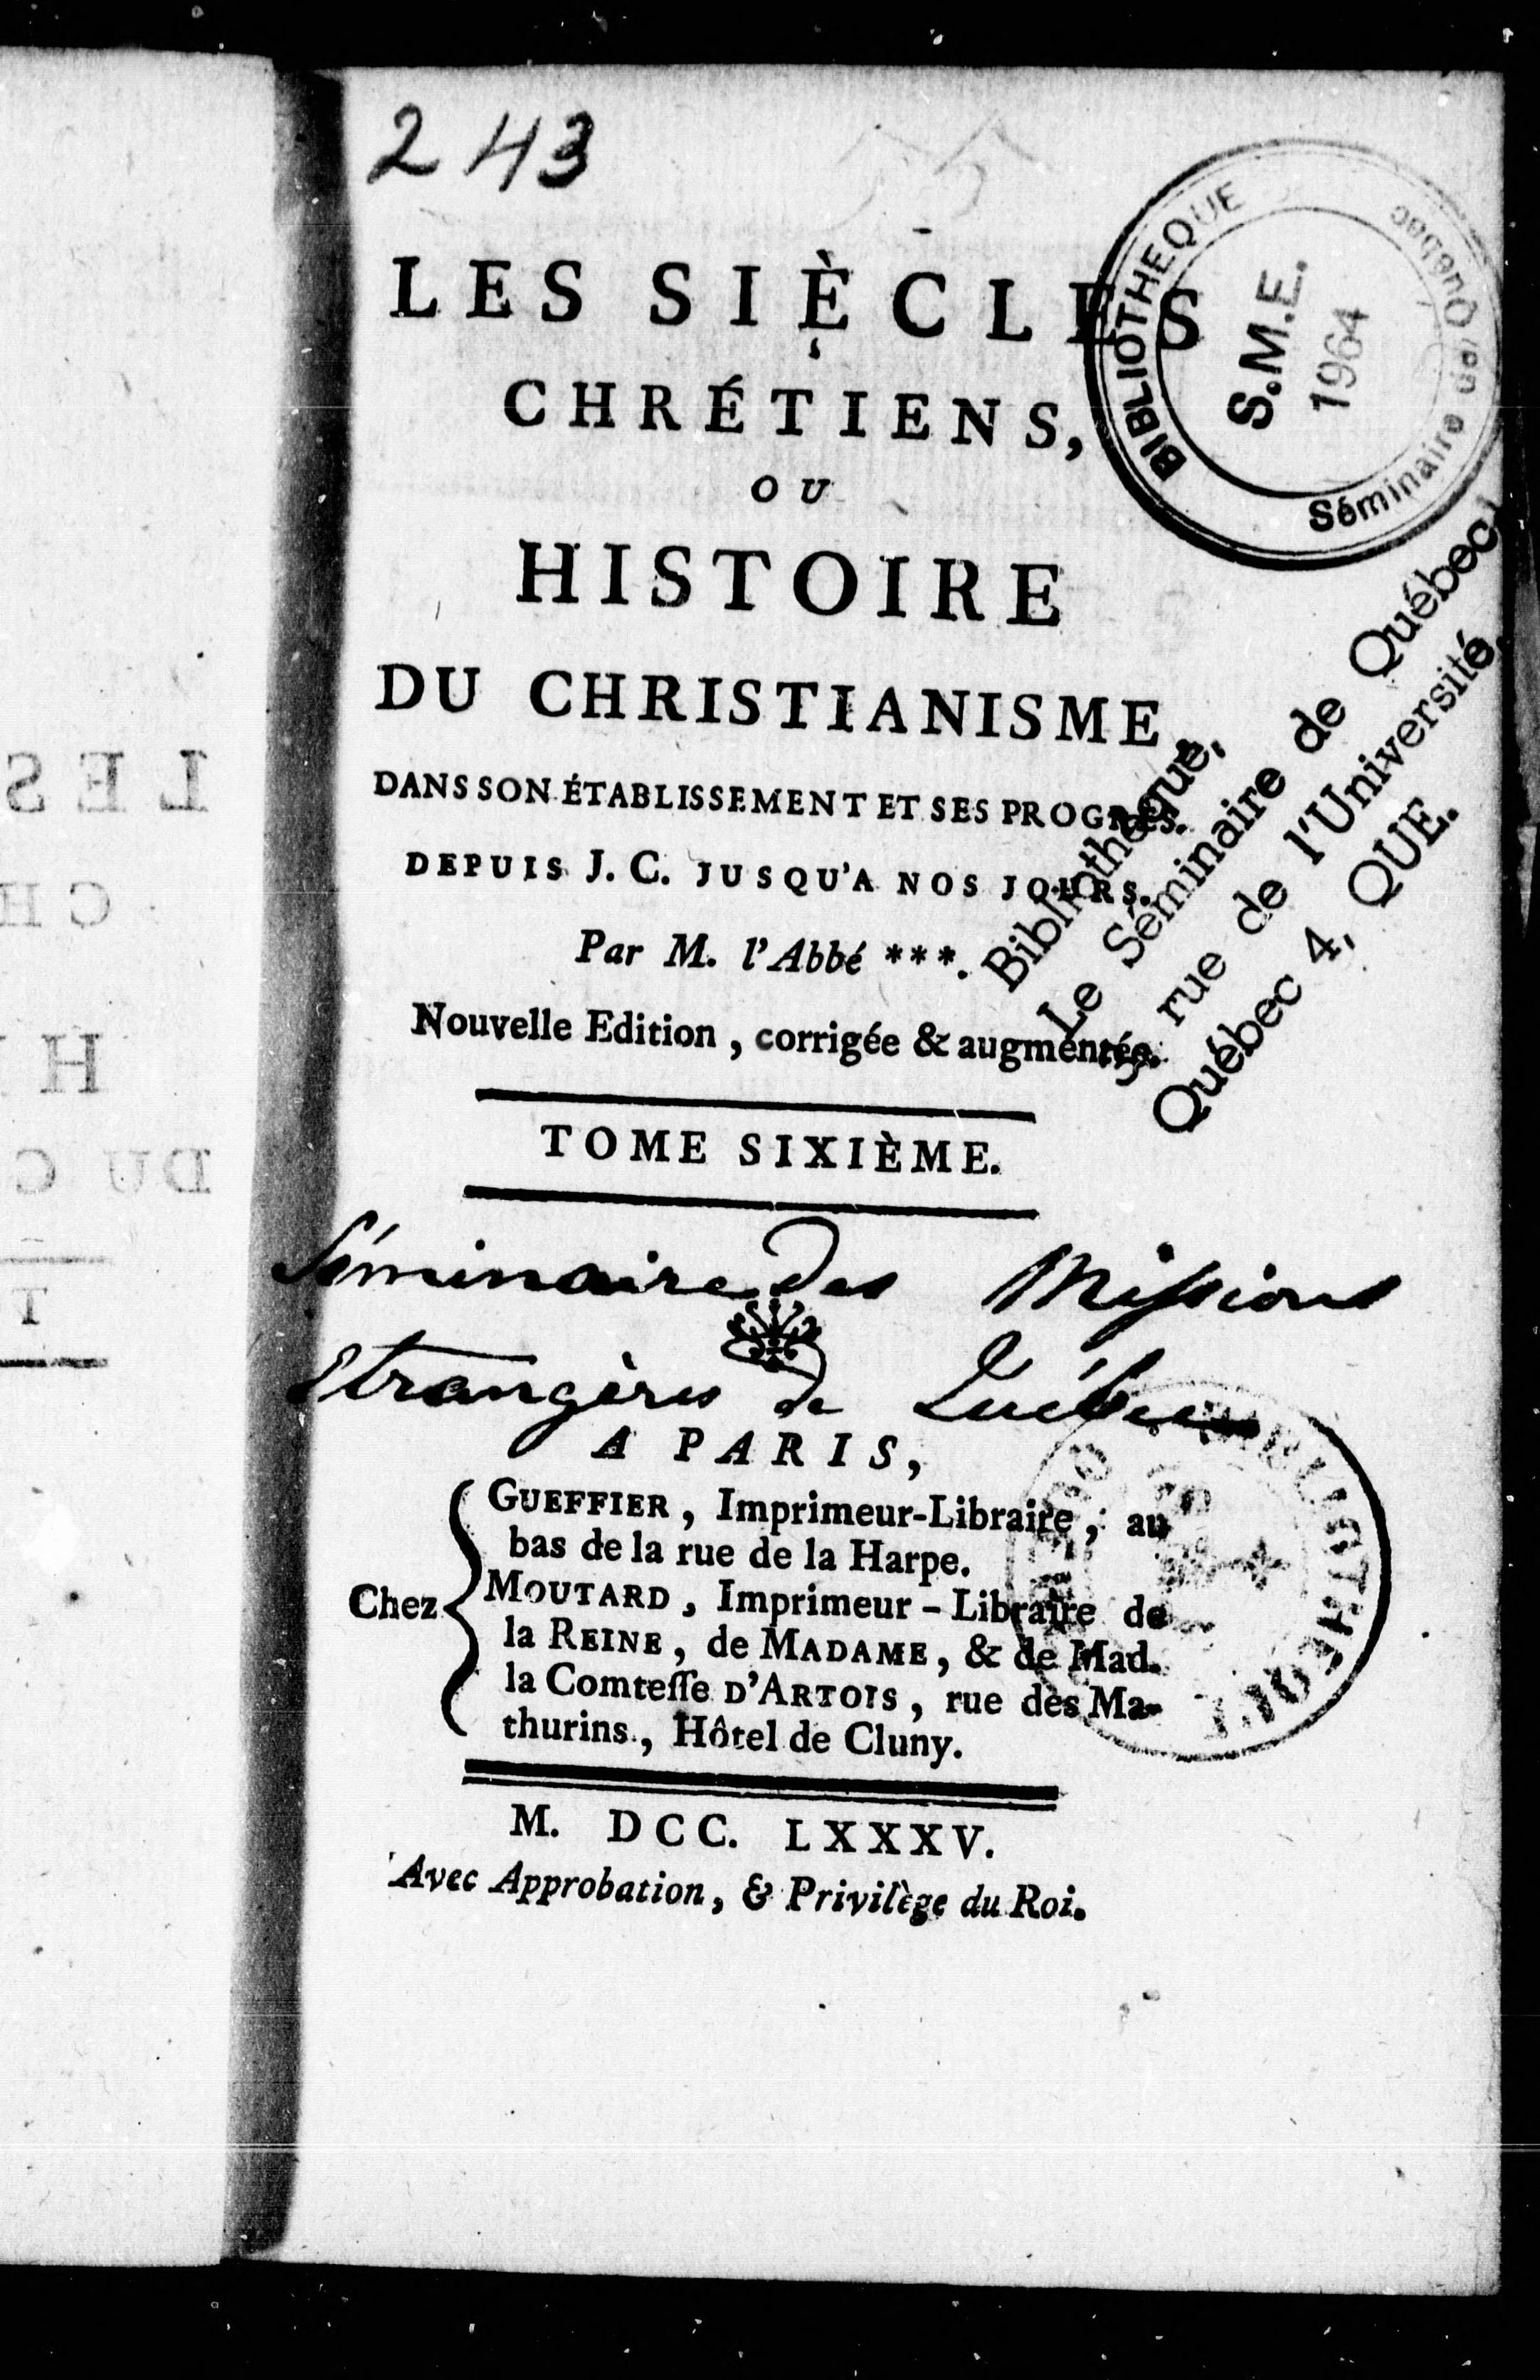 243
LES SIÈCLES
CHRÉTIENS,
OU
HISTOIRE
DU CHRISTIANISME,
DANS SON ÉTABLISSEMENT ET SES PROGRÈS.
DEPUIS J. C. JUSQU'A NOS JOURS.
Par M. l'Abbé ***.
Nouvelle Edition, corrigée & augmentée.
TOME SIXIÈME.
Séminaire des Missions
Etrangères de Québec
A PARIS,
Chez
GUEFFIER, Imprimeur-Libraire, au
bas de la rue de la Harpe.
MOUTARD, Imprimeur-Libraire de
la REINE, de MADAME, & de Mad.
la Comtesse D'ARTOIS, rue des Ma-
thurins, Hôtel de Cluny.
M. DCC. LXXXV.
Avec Approbation, & Privilège du Roi.
BIBLIOTHEQUE
S.M.E.
1964
Séminaire de Québec
Bibliothèque,
Le Séminaire de Québec,
rue de l'Université,
Québec 4, QUE.
LES
CH
H
DU C
T